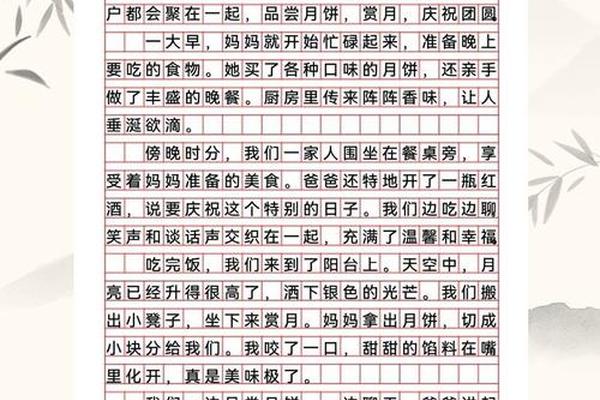 户都会聚在一起，品尝月饼，赏月，庆祝团圆。
一大早，妈妈就开始忙碌起来，准备晚上
要吃的食物。她买了各种口味的月饼，还亲手
做了丰盛的晚餐。厨房里传来阵阵香味，让人
垂涎欲滴。
傍晚时分，我们一家人围坐在餐桌旁，享
受着妈妈准备的美食。爸爸还特地开了一瓶红
酒，说要庆祝这个特别的日子。我们边吃边聊，
笑声和谈话声交织在一起，充满了温馨和幸福。
吃完饭，我们来到了阳台上。天空中，月
亮已经升得很高了，洒下银色的光芒。我们搬
出小凳子，坐下来赏月。妈妈拿出月饼，切成
小块分给我们。我咬了一口，甜甜的馅料在嘴
里化开，真是美味极了。